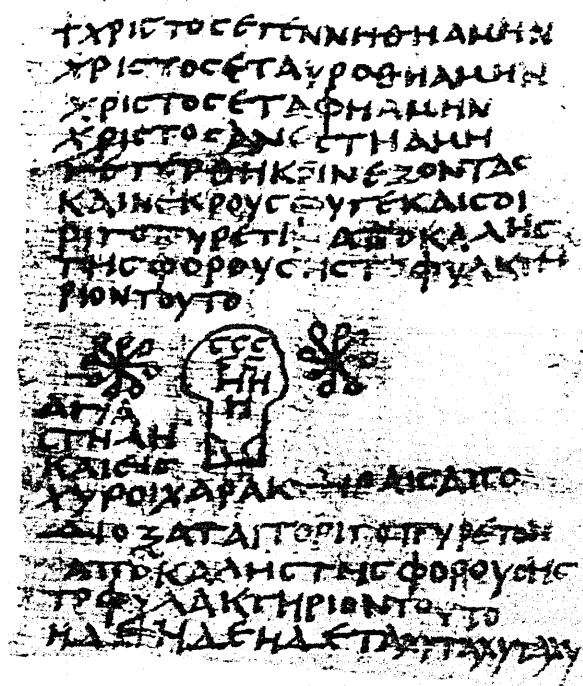 †ΧΡΙCΤΟCΕΓΕΝΝΗΘΗΑΜΗΝ
ΧΡΙCΤΟCΕΤΑΥΡΟΘΗΑΜΗΝ
ΧΡΙCΤΟCΕΤΑΦΗΑΜΗΝ
ΧΡΙCΤΟCΑΝΕCΤΗΑΜΗ
ΓΕΓΕΡΘΗΚΡΙΝΕΖΟΝΤΑC
ΚΑΙΝΕΚΡΟΥCΦΥΓΕΚΑΙCΟΙ
ΡΙΓΟΠΥΡΕΤΙ ΑΠΟΚΑΛΗC
ΤΗCΦΟΡΟΥCΗCΤΟΦΥΛΑΚΤΗ
ΡΙΟΝΤΟΥΤΟ
CCC
ΗΗ
Η
ΑΓΙΑ
CΤΗΛΗ
ΚΑΙΕΙC
ΧΥΡΟΙΧΑΡΑΚΤΗΡΑΙC
ΔΙΟΞΑΤΑΙΤΟΡΙΓΟΠΥΡΕΤΟΝ
ΑΠΟΚΑΛΗCΤΗCΦΟΡΟΥCΗC
ΤΟΦΥΛΑΚΤΗΡΙΟΝΤΟΥΤΟ
ΗΔΕΗΔΕΗΔΕΤΑΧΥΤΑΧΥΤΑΧΥ